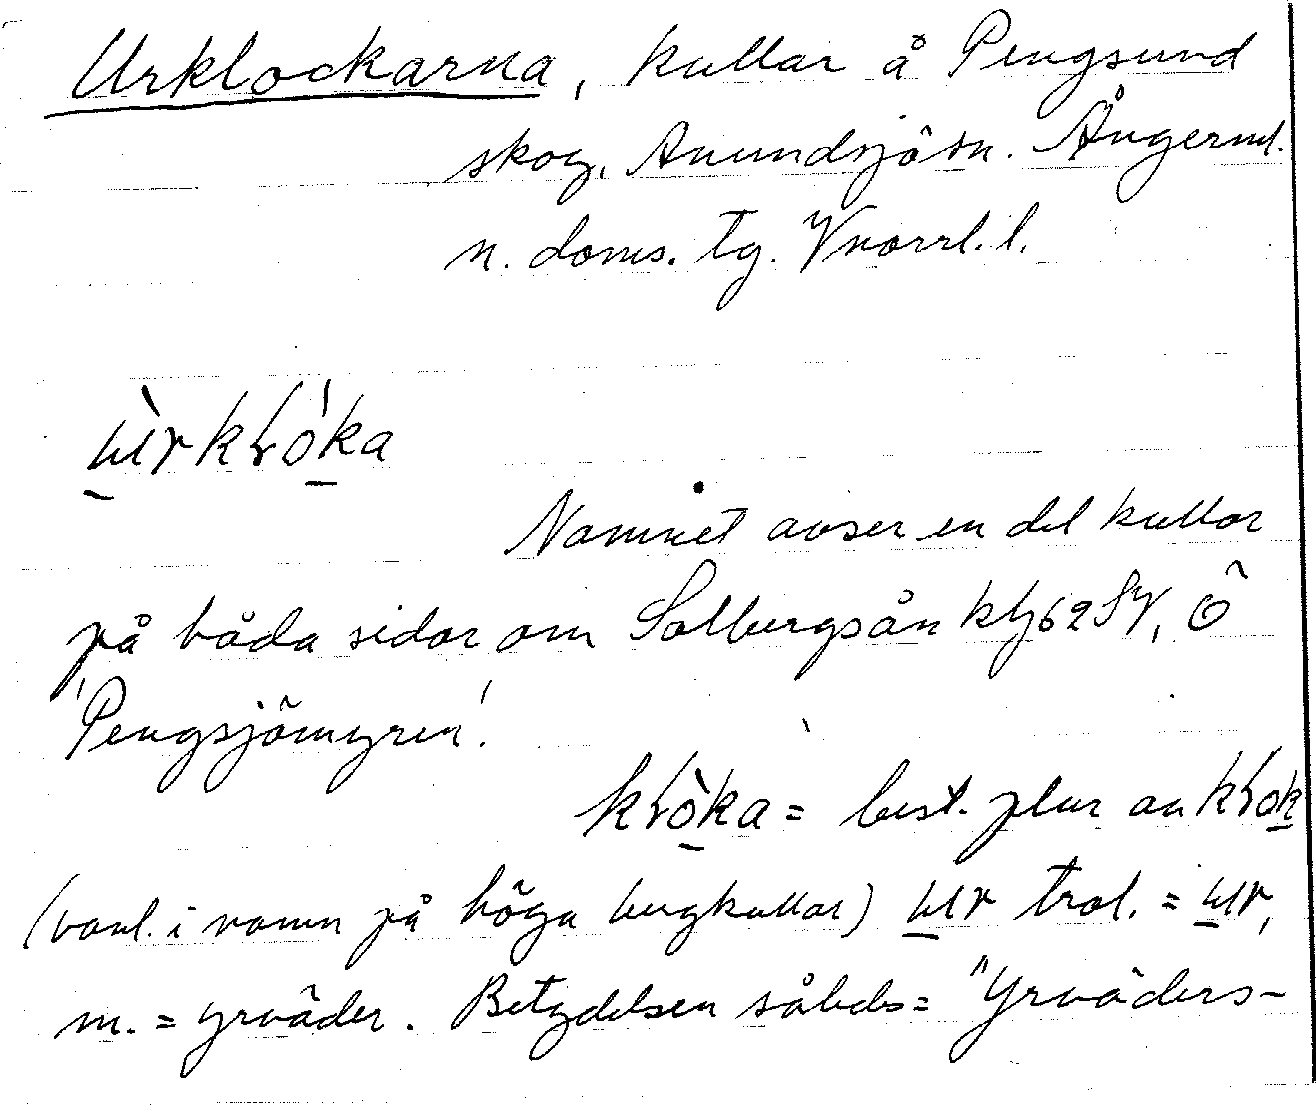 Urklockarna, kullar å Pengsund
skog, Anundsjö sn. Ångerml.
n. doms. tg. Vnorrl. l.
ùrkłòka
Namnet avser en del kullar
på båda sidor om Solbergsån
'Pengsjömyren'.
kłòka = best. plur av kłok
(vanl. i namn på höga bergkullar) ur trol. = ur,
m. = yrväder. Betydelsen således = "Yrväders-